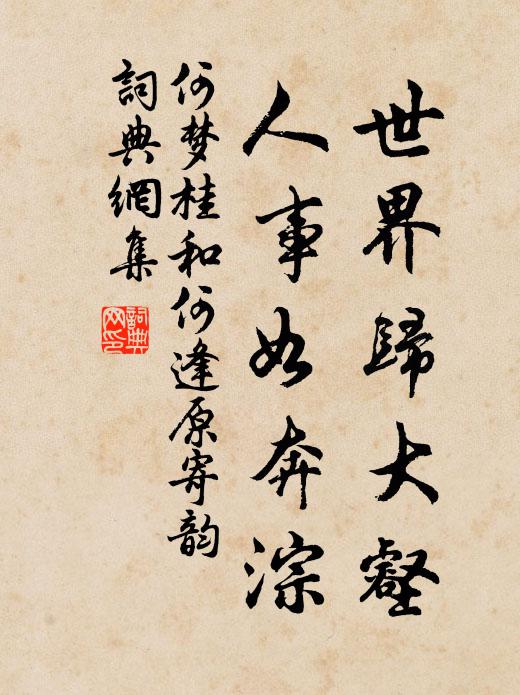 世界歸大壑
人事如奔淙
何梦桂和何逢原寄韵
詞典網集
詞典网印